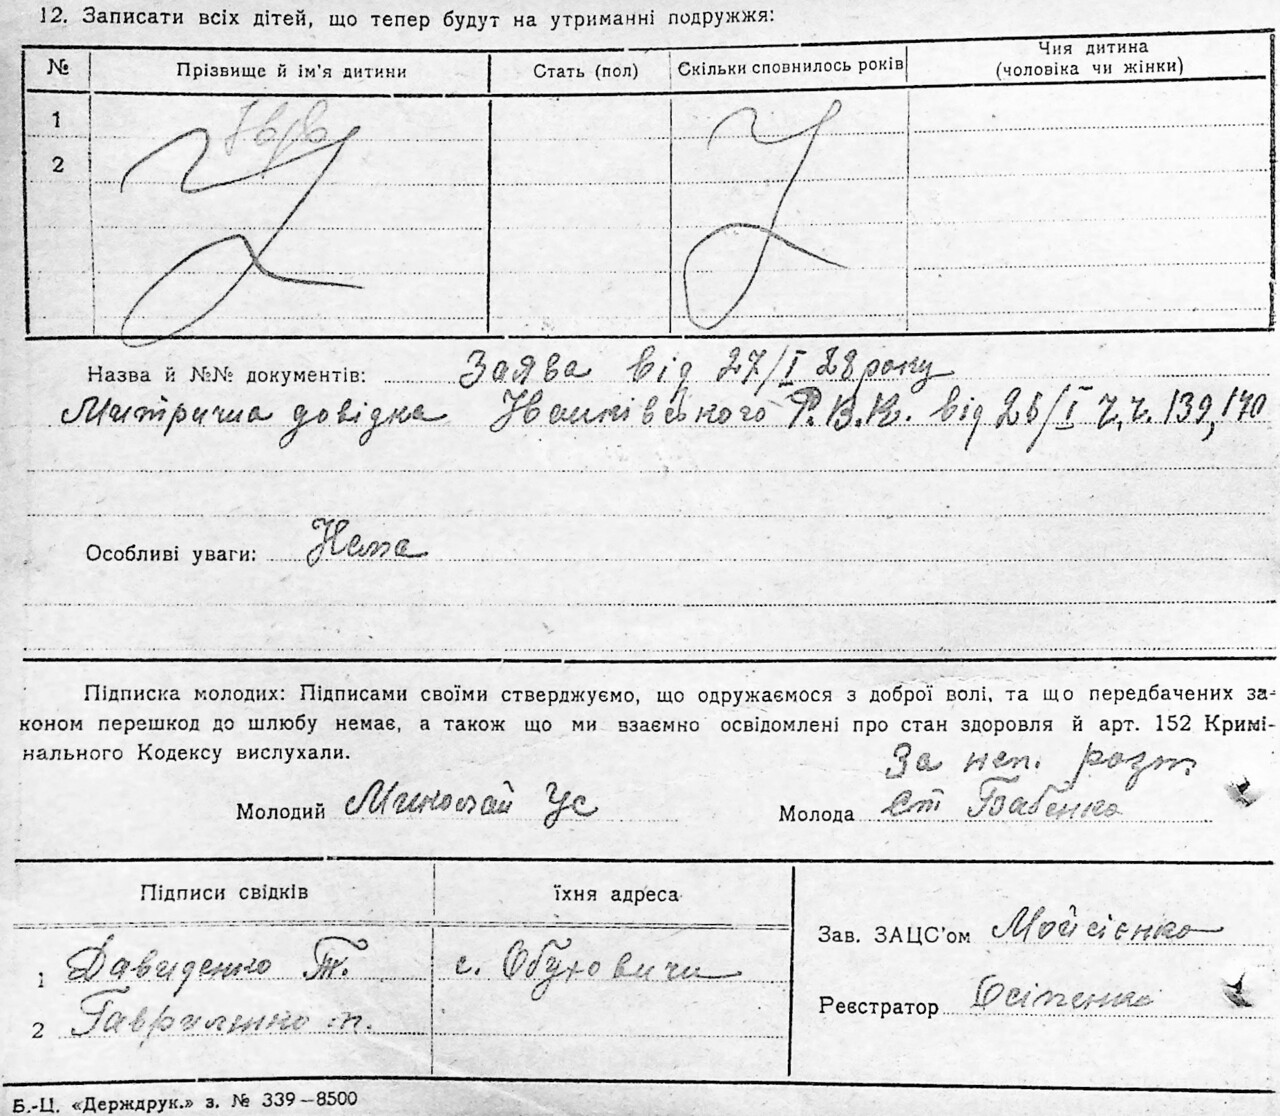 12. Записати всіх дітей, що тепер будут на утриманні подружжя:
№ Прізвище й ім'я дитини Стать (пол) Скільки сповнилось років Чия дитина (чоловіка чи жінки)
1
2
Назва й №№ документів: Заява від 27/I 28 року
Митрична довідка Іванківського Р.В.К. від 25/I ч.ч. 139, 140
Особливі уваги: Нема
Підписка молодих: Підписами своїми стверджуємо, що одружаємося з доброї волі, та що передбачених за-
коном перешкод до шлюбу немає, а також що ми взаємно освідомлені про стан здоровля й арт. 152 Кримі-
нального Кодексу вислухали.
За неп. розп.
Молодий Миколай Ус Молода Бабенко
Підписи свідків їхня адреса
Зав. ЗАЦС'ом Мойсієнко
1 Давиденко Т. с. Обуховичи
Реєстратор Осіпенко
2 Гавриленко
Б.-Ц. «Держдрук.» з. № 339—8500